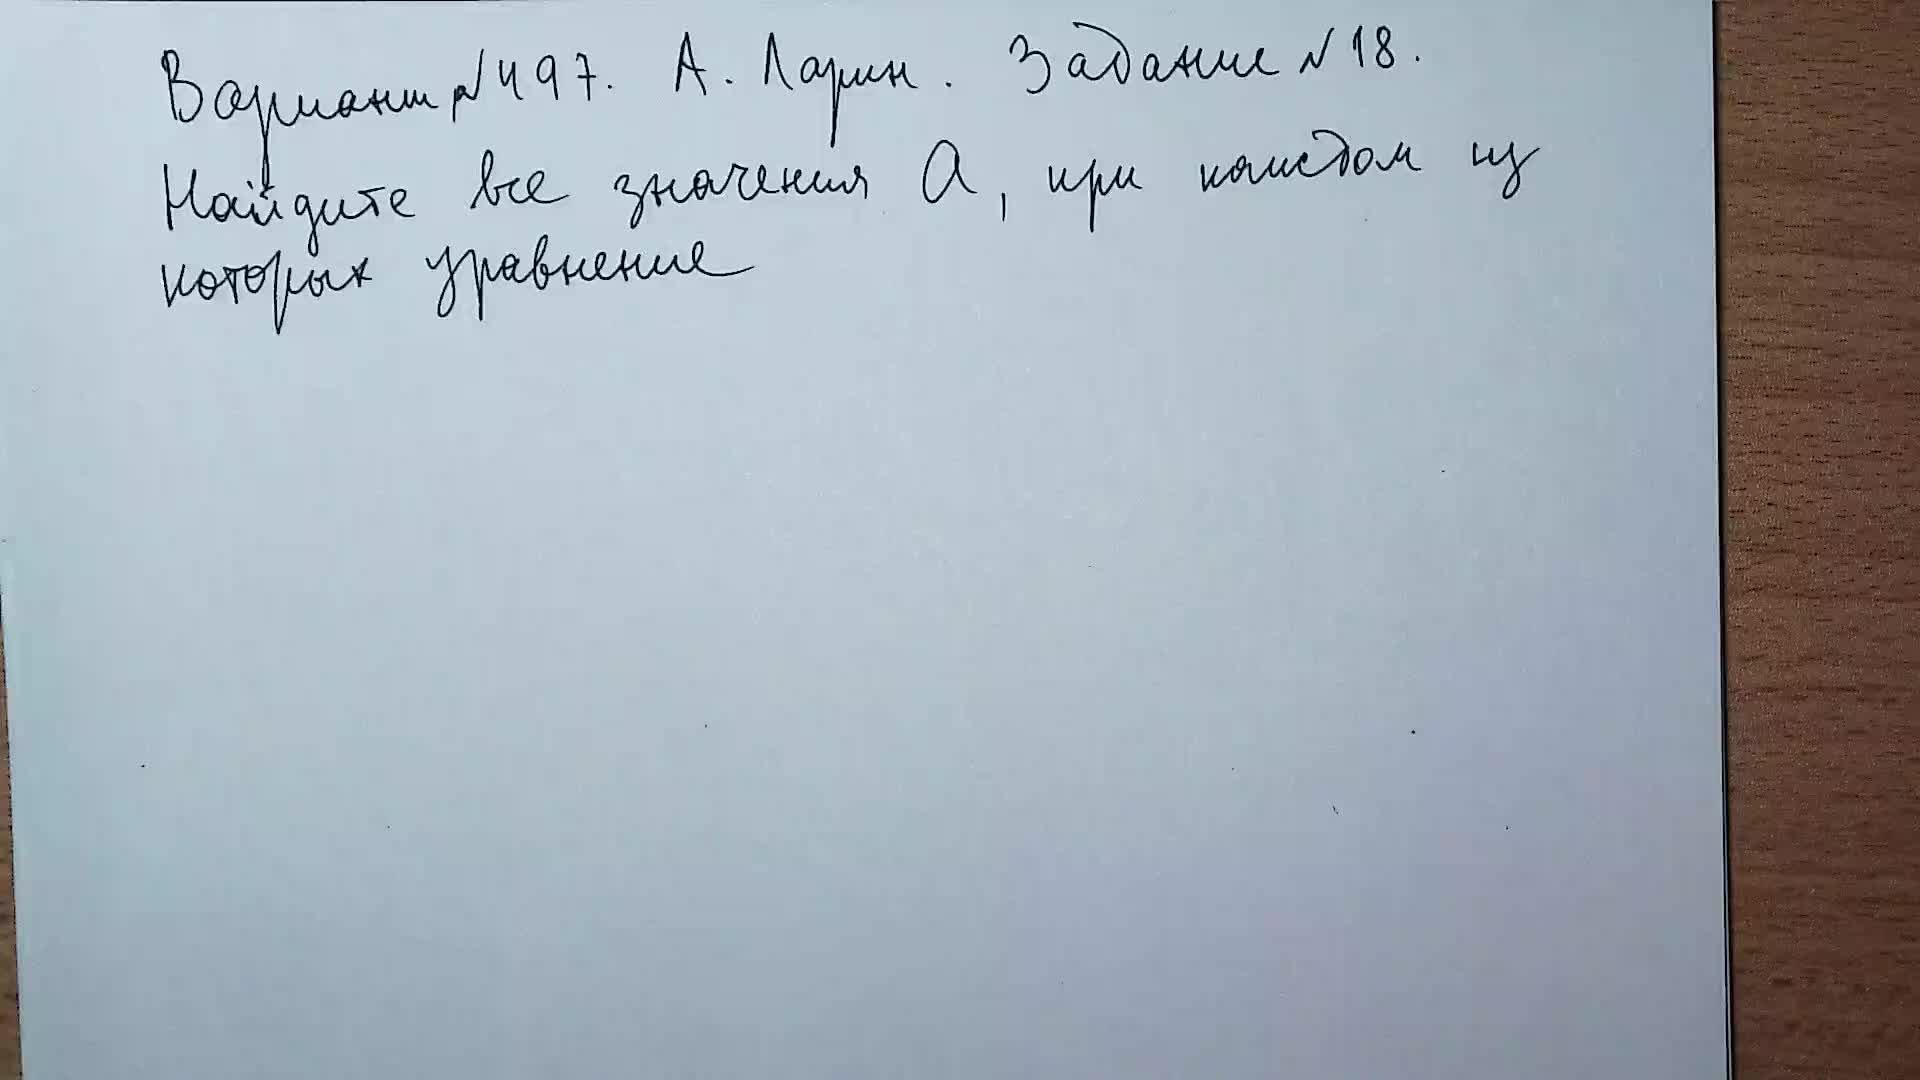 Вариант №497. А. Ларин. Задание №18.
Найдите все значения а, при каждом из
которых уравнение